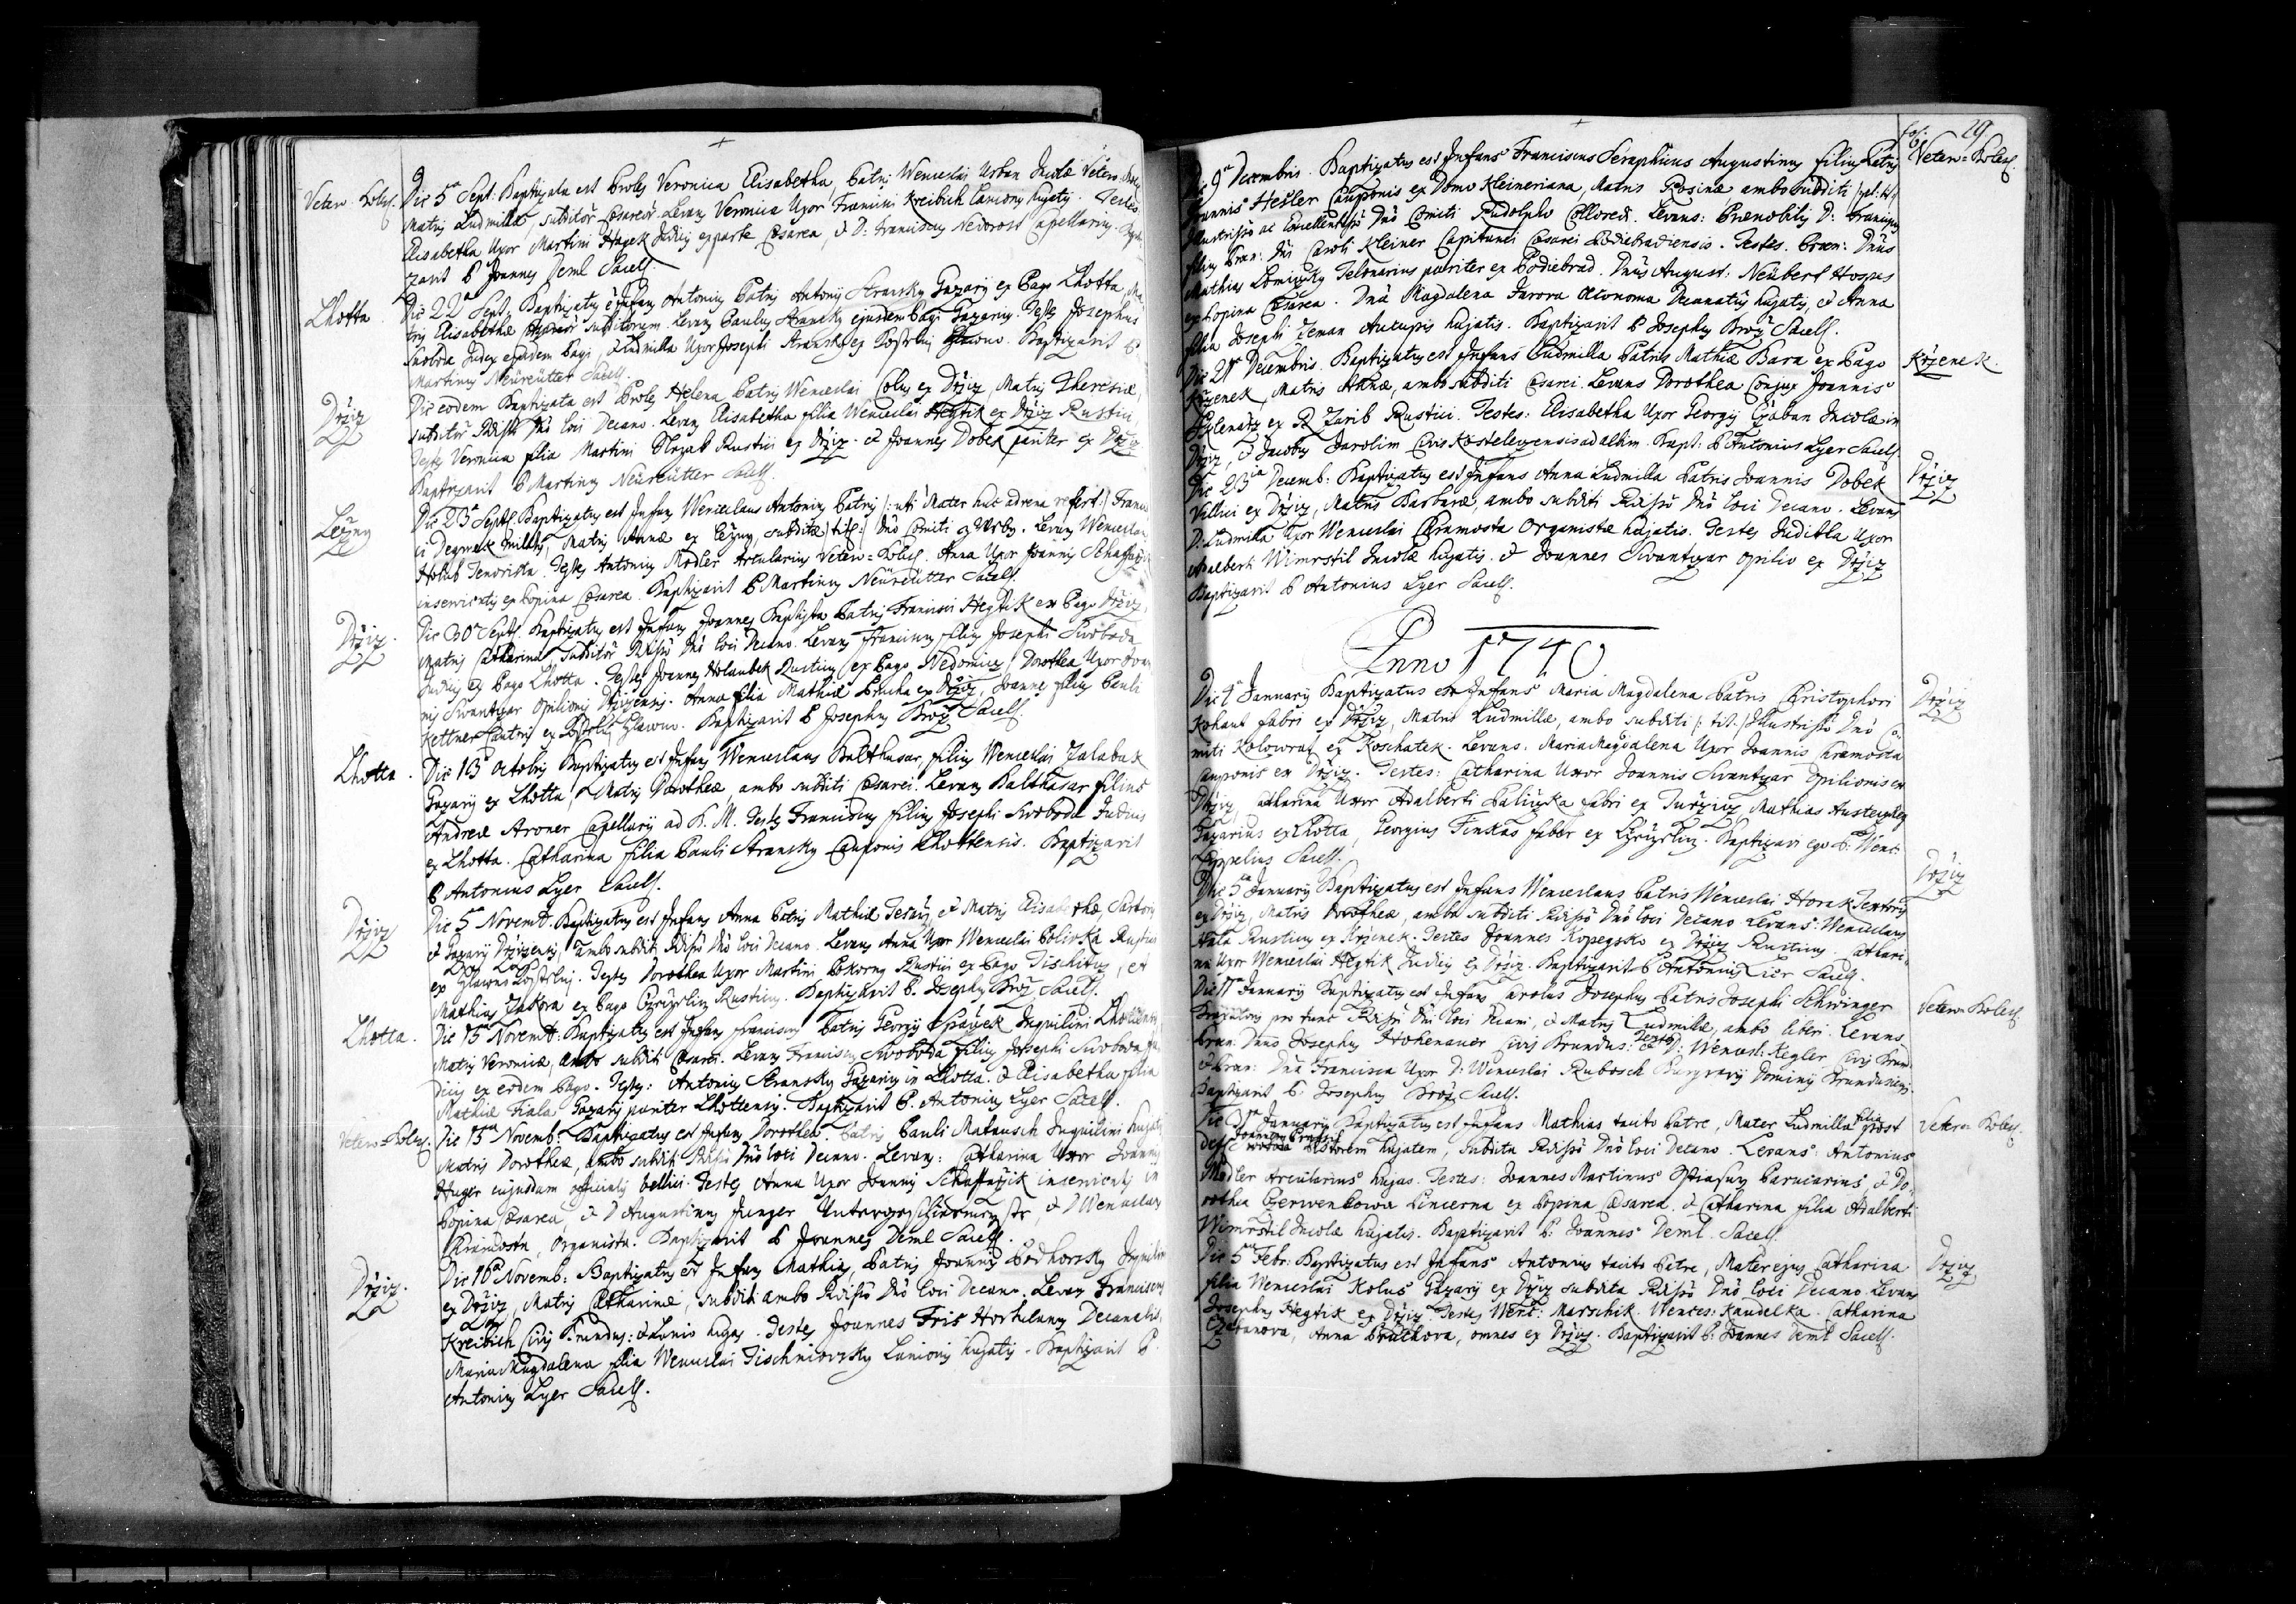 Veter. Boles. Die 5ta Sept: Baptizata est Proles Veronica Elisabetha, Patris Wenceslai Urban Incolae Vetero
Matris Ludmillae, subditor Caesareor. Levans Veronica Uxor Francisci Kreibich Lanionis hujatis. Testes
Elisabetha Uxor Martini Hagek Judicis ex parte Caesarea, & D: Franciscus Nedorost Capellarius. Bapti
zavit P. Joannes Deml Sacell.
Lhotta Die 22a Sept. Baptizatus e Infans Antonius Patris Antonii Stransky Gazarii ex Pago Lhotta, Ma
tris Elisabethae subditorum. Levans Paulus Stransky ejusdem Pagi Gazarius. Testes Josephus
Swoboda Judex ejusdem Pagi, & Ludmilla Uxor Josephi Stransky ex Kostelni Hlawno. Baptizavit P.
Martinus Neureutter Sacell.
Držiz Die eodem Baptizata est Proles Helena Patris Wenceslai Colus ex Držiz, Matris Theresiae,
subditor Rdissi Dno loci Decano. Levans Elisabetha filia Wenceslai Hegtik ex Držiz Rustici
Testes Veronica filia Martini Rustici ex Držiz. & Joannes Dobek pariter ex Držiz
Baptizavit P. Martinus Neureutter Sacell.
Die 23a Septb. Baptizatus est Infans Wenceslaus Antonius Patris /: uti Mater huc advena refert :/ Franci
ci Degmek militis, Matris Annae ex Ležny, subditae /: titl: / Dno Comiti a Wrby. Levans Wenceslaus
Holub Tenorista. Testes Antonius Modler Arcularius Vetero-Boles. Anna Uxor Joannis
inservientis ex Popina Caesarea. Baptizavit P. Martinus Neureutter Sacell.
Držiz. Die 30a Septb. Baptizatus est Infans Joannes Baptista Patris Francisci Hegtik ex Pago Držiz,
Matris Catharinae subditor Rdissi Dno loci Decano. Levans Franciscus filius Josephi Swoboda
Judicis ex Pago Lhotta. Testes Joannes Holaubek Rusticus ex Pago Nedomicz, Dorothea Uxor Joan
nis Swantzar Opilionis Držizensis. Anna filia Mathiae Prucha ex Držiz, Joannes filius Pauli
Kettner ex Kostelni Hlawno. Baptizavit P. Josephus Brož Sacell.
Lhotta. Die 13a Octobris Baptizatus est Infans Wenceslaus Balthasar, filius Wenceslai Jalabak
Gazarii ex Lhotta, Matris Dorotheae, ambo subditi Caesarei. Levans Balthasar filius
Andreae Aroner Capellarii ad B. M. Testes Franciscus filius Josephi Swoboda Judicis
ex Lhotta. Catharina filia Pauli Stransky Cauponis Lhottensis. Baptizavit
P. Antonius Lyer Sacell.
Držiz Die 5ta Novemb. Baptizatus est Infans Anna Patris Mathiae Tesarž, & Matris Elisabethae, Sartoris
& Gazarii Držizensis, ambo subditi Rdissi Dno loci Decano. Levans Anna Uxor Wenceslai Polivka Rustici
ex Hlawno Kostelni. Testes Dorothea Uxor Martini Pokorny Rustici ex Pago Tischitz, et
Mathias ex Pago Rusticus. Baptizavit P. Josephus Brož Sacell.
Lhotta. Die 15a Novemb: Baptizatus est Infans Franciscus Patris Georgii Inquilini Lhottensis
Matris Veronicae, ambo subditi Caesarei. Levans Franciscus Swoboda filius Josephi Swoboda Ju
dicis ex eodem Pago. Testes: Antonius Stransky Gazarius in Lhotta. & Elisabetha filia
Mathiae Fiala Gazarii pariter Lhottensis. Baptizavit P. Antonius Lyer Sacell.
Vetero-Boles. Die 15ta Novemb: Baptizatus est Infans Dorothea. Patris Pauli Matausch Inquilini hujatis
Matris Dorotheae, ambo subditi Rdissi Dno loci Decano. Levans: Catharina Uxor Joannis
Huger cujusdam officialis bellici. Testes Anna Uxor Joannis inservientis in
Popina Caesarea, & D Augustinus Junger, & D Wenceslaus
Chramosta, Organista. Baptizavit P. Joannes Deml Sacell.
Držiz. Die 16a Novemb: Baptizatus est Infans Mathias, Patris Joannis Podhorsky Inquilini
ex Držiz, Matris Catharinae, subditi ambo Rdissi Dno loci Decano. Levans Franciscus
Kreibich Civis Brundus: & Lanio hujas. Testes Joannes Fris Hortulanus Decanalis,
Maria Magdalena filia Wenceslai Tischniovsky Lanionis hujatis. Baptizavit P.
Antonius Lyer Sacell.
fol: 29.
Die 9a Decembris. Baptizatus est Infans Franciscus Seraphicus Augustinus filius Patris Vetero-Boles.
Joannis Hesler Cauponis ex Domo Kleineriana, Matris Rosinae ambo subditi /: tit: /
Illustrisso ac Excellentisso Dno Comiti Rudolpho Colloredi. Levans: Praenobilis D: Franciscus
filius Praen: Dni Caroli Kleiner Capitanei Caesarei Podiebradensis. Testes. Praen: Dnus
Mathias Lomizky Telonarius pariter ex Podiebrad. Dnus August: Neubert Hospes
ex Popina Caesarea. Dna Magdalena Jurora Oeconoma Decanatus hujatis, & Anna
filia Josephi Zeman Aucupis hujatis. Baptizavit P. Josephus Brož Sacell.
Die 21a Decembris. Baptizatus est Infans Ludmilla Patris Mathiae Bara ex Pago Krženek.
Krženek, Matris Annae, ambo subditi Caesarei. Levans Dorothea Conjux Joannis
ex Rustici. Testes: Elisabetha Uxor Georgii Czaban Incolae in
Držiz, & Jacobus Jarolim Civis Kostelecensis ad albim. Bapt: P. Antonius Lyer Sacell.
Die 23ia Decemb: Baptizatus est Infans Anna Ludmilla Patris Joannis Dobek Držiz
Villici ex Držiz, Matris Barbarae, ambo subditi Rdisso Dno loci Decano. Levans
D: Ludmilla Uxor Wenceslai Chramosta Organistae hujatis. Testes Juditha Uxor
Adalberti Wimrstil Incolae hujatis. & Joannes Swantzar Opilio ex Držiz
Baptizavit P. Antonius Lyer Sacell.
Anno 1740
Die 4a January Baptizatus est Infans Maria Magdalena Patris Christophori Držiz
Kohaut fabri ex Držiz, Matris Ludmillae, ambo subditi /: tit. :/ Illustrisso Dno Co
miti Kolowrat ex Koschatek. Levans: Maria Magdalena Uxor Joannis Chramosta
Cauponis ex Držiz. Testes: Catharina Uxor Joannis Swantzar Opilionis ex
Držiz, Catharina Uxor Adalberti Palizka fabri ex Mathias
Gazarius ex Lhotta, Georgius faber ex. Baptizavi ego P: Wenc:
Lippelius Sacell.
Die 5ta January Baptizatus est Infans Wenceslaus Patris Wenceslai Horak Textoris Držiz
ex Držiz, Matris Dorotheae, ambo subditi Rdisso Dno loci Decano Levans: Wenceslaus
Hala Rusticus ex Krženek. Testes Joannes Kopegsko ex Držiz Rusticus. Cathari
na Uxor Wenceslai Hegtik Judicis ex Držiz. Baptizavit P. Antonius Lier Sacell.
January Baptizatus est Infans Carolus Josephus Patris Josephi Schwinger Vetero Boles.
pro tunc Rdissi Dni loci Decani, & Matris Ludmillae, ambo liberi. Levans
Praen: Dnus Josephus Hohenauer Civis Brundus: Testes D: Wencesl: Kegler Civis Brund
& Praen: Dna Francisca Uxor D: Wenceslai Rubasch Burgravii Dominii Brundusiensis.
Baptizavit P. Josephus Brož Sacell.
January Baptizatus est Infans Mathias tacito Patre, Mater Ludmilla filia post Vetero Boles.
def: Joannem Pistorem hujatem, subdita Rdisso Dno loci Decano. Levans: Antonius
Modler Arcularius hujas. Testes: Joannes Martinus & Do
rothea Czerwenkowa Pincerna ex Popina Caesarea. & Catharina filia Adalberti
Wimrstil Incolae hujatis. Baptizavit P. Joannes Deml Sacell.
Die 5ta Febr: Baptizatus est Infans Antonius tacito Patre, Mater ejus Catharina Držiz
filia Wenceslai Kolus Gazarii ex Držiz subdita Rdisso Dno loci Decano Levans
Josephus Hegtik ex Držiz. Testes Wenc: Marschik. Wences: Kaudelka. Catharina
Czabanova, Anna Pruchova, omnes ex Držiz. Baptizavit P. Joannes Deml Sacell.